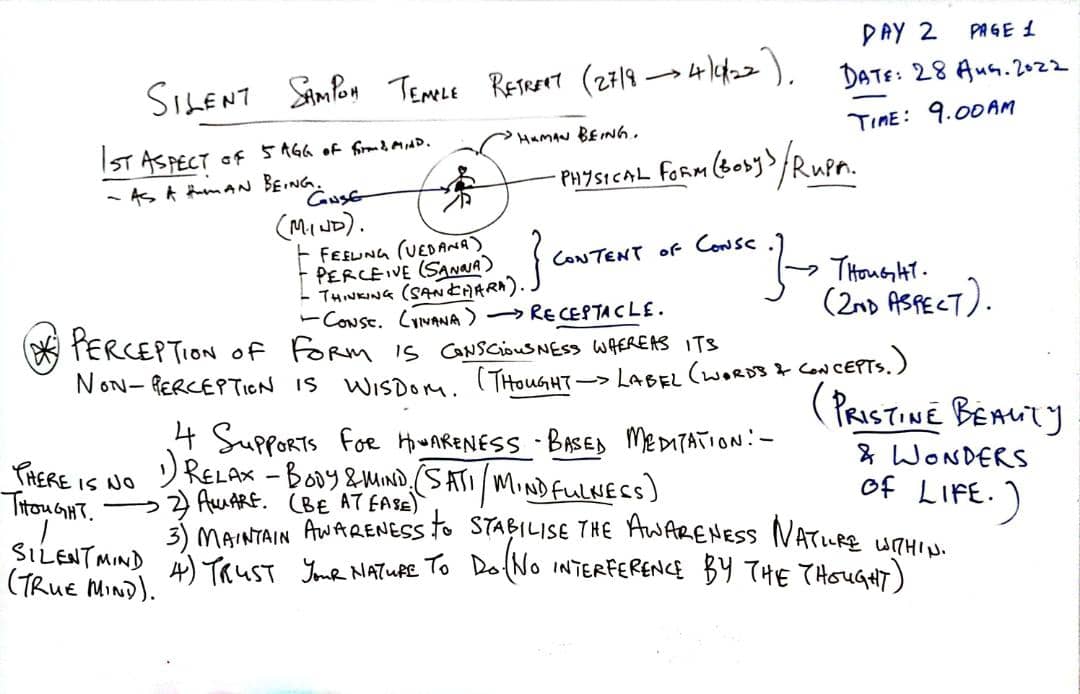 DAY 2 PAGE 1
DATE: 28 AUG. 2022
TIME: 9.00AM
SILENT SAMPOH TEMPLE RETREAT (27/8 → 4/9/22).
1ST ASPECT OF 5 AGG OF FORM & MIND.
~ AS A HUMAN BEING.
HUMAN BEING.
CONSC
PHYSICAL FORM (BODY)/RUPA.
(MIND).
- FEELING (VEDANA)
- PERCEIVE (SANNA)
- THINKING (SANKHARA).
CONTENT OF CONSC.
- CONSC. (VINANA) → RECEPTACLE.
→ THOUGHT.
(2ND ASPECT).
* PERCEPTION OF FORM IS CONSCIOUSNESS WHEREAS ITS
NON-PERCEPTION IS WISDOM. (THOUGHT → LABEL (WORDS & CONCEPTS.)
(PRISTINE BEAUTY
& WONDERS
OF LIFE.)
4 SUPPORTS FOR AWARENESS-BASED MEDITATION:-
1) RELAX - BODY & MIND. (SATI/MINDFULNESS)
2) AWARE. (BE AT EASE)
3) MAINTAIN AWARENESS to STABILISE THE AWARENESS NATURE WITHIN.
4) TRUST YOUR NATURE TO DO (NO INTERFERENCE BY THE THOUGHT)
THERE IS NO
THOUGHT. →
SILENT MIND
(TRUE MIND).